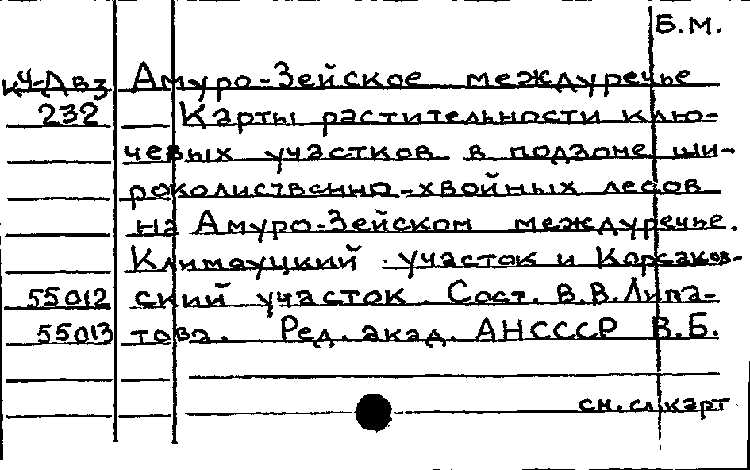 Б.М.
к4-Двз Амуро-Зейское междуречье
232 Карты растительности клю-
чевых участков в подзоне ши-
роколиственно-хвойных лесов
на Амуро-Зейском междуречье.
Климоуцкий участок и Корсаков-
55012 ский участок. Сост. В.В.Липа-
55013 това. Ред. акад. АНСССР В.Б.
см. сл. карт